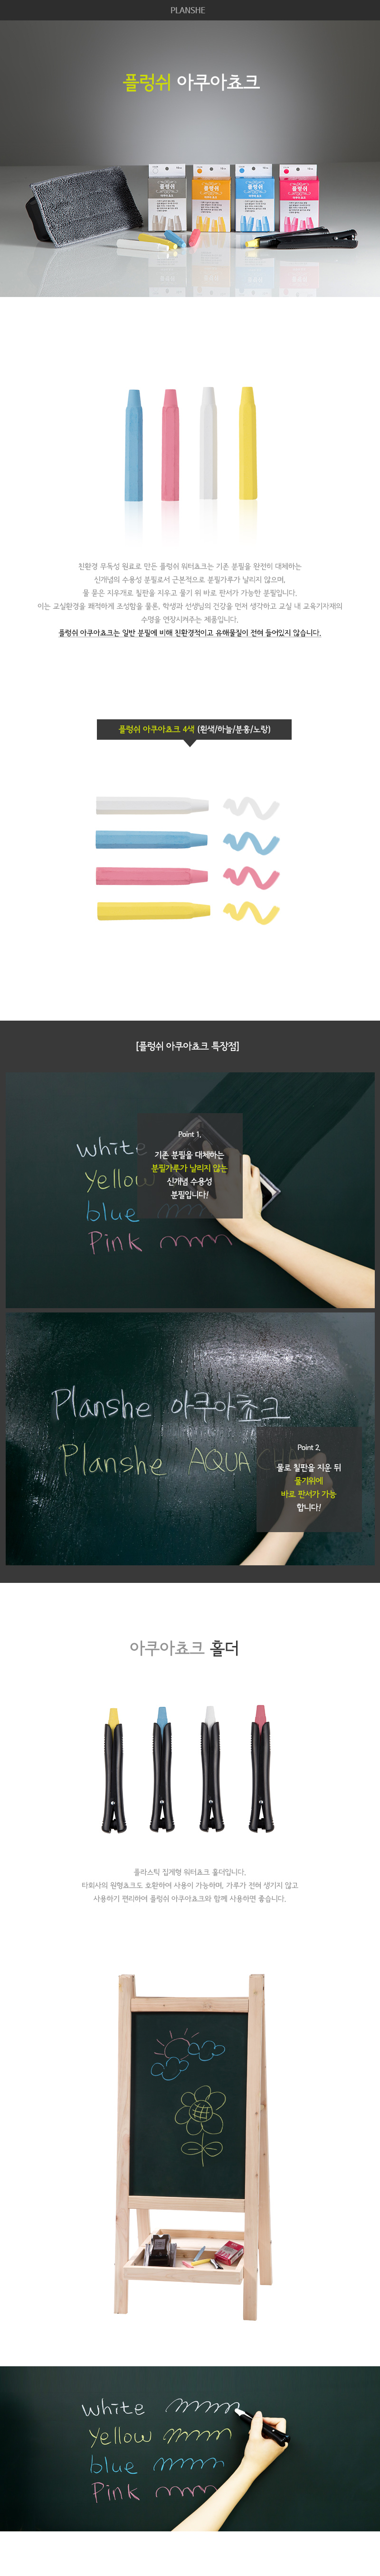 PLANSHE
플렁쉬 아쿠아쵸크
플렁쉬
플렁쉬
플렁쉬
플렁쉬
친환경 무독성 원료로 만든 플렁쉬 워터쵸크는 기존 분필을 완전히 대체하는
신개념의 수용성 분필로서 근본적으로 분필가루가 날리지 않으며,
물 묻은 지우개로 칠판을 지우고 물기 위 바로 판서가 가능한 분필입니다.
이는 교실환경을 쾌적하게 조성함을 물론, 학생과 선생님의 건강을 먼저 생각하고 교실 내 교육기자재의
수명을 연장시켜주는 제품입니다.
플렁쉬 아쿠아쵸크는 일반 분필에 비해 친환경적이고 유해물질이 전혀 들어있지 않습니다.
플렁쉬 아쿠아쵸크 4색 (흰색/하늘/분홍/노랑)
[플렁쉬 아쿠아쵸크 특장점]
Point 1.
기존 분필을 대체하는
분필가루가 날리지 않는
신개념 수용성
분필입니다!
white
Yellow
blue
Pink
Planshe 아쿠아쵸크
Planshe AQUA
Point 2.
물로 칠판을 지운 뒤
물기위에
바로 판서가 가능
합니다!
아쿠아쵸크 홀더
플라스틱 집게형 워터쵸크 홀더입니다.
타회사의 원형쵸크도 호환하여 사용이 가능하며, 가루가 전혀 생기지 않고
사용하기 편리하여 플렁쉬 아쿠아쵸크와 함께 사용하면 좋습니다.
white
Yellow
blue
Pink